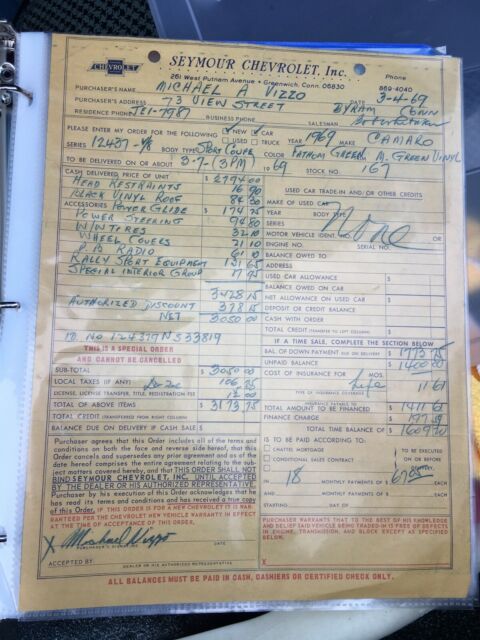 CHEVROLET
SEYMOUR CHEVROLET, Inc.
261 West Putnam Avenue • Greenwich, Conn. 06830
Phone
869-4040
PURCHASER'S NAME MICHAEL A VIZZO
DATE 3-4-69
PURCHASER'S ADDRESS 73 VIEW STREET BYRAM CONN
RESIDENCE PHONE JE1-7987 BUSINESS PHONE SALESMAN
PLEASE ENTER MY ORDER FOR THE FOLLOWING NEW CAR YEAR 1969 MAKE CAMARO
USED TRUCK
SERIES 12437-V8 BODY TYPE SPORT COUPE COLOR FATHOM GREEN, M. GREEN VINYL
TO BE DELIVERED ON OR ABOUT 3-7-(3PM) 1969 STOCK NO. 167
CASH DELIVERED PRICE OF UNIT $ 2794 00
HEAD RESTRAINTS 16 90
BLACK VINYL ROOF 84 30
ACCESSORIES POWERGLIDE 174 25
POWER STEERING 94 80
W/W TIRES 32 10
WHEEL COVERS 21 10
P B RADIO 61 10
RALLY SPORT EQUIPMENT 131 65
SPECIAL INTERIOR GROUP 17 95
3428 15
AUTHORIZED DISCOUNT 378 15
NET 3050 00
ID. NO 124379N533819
THIS IS A SPECIAL ORDER
AND CANNOT BE CANCELLED
SUB-TOTAL $ 3050 00
LOCAL TAXES (IF ANY) 106 75
LICENSE, LICENSE TRANSFER, TITLE, REGISTRATION FEE 17 00
TOTAL OF ABOVE ITEMS $ 3173 75
TOTAL CREDIT (TRANSFERRED FROM RIGHT COLUMN)
BALANCE DUE ON DELIVERY IF CASH SALE $
Purchaser agrees that this Order includes all of the terms
and conditions on both the face and reverse side hereof, that this
Order cancels and supersedes any prior agreement and as of the
date hereof comprises the entire agreement relating to the sub-
ject matters covered hereby, and that THIS ORDER SHALL NOT
BIND SEYMOUR CHEVROLET, INC. UNTIL ACCEPTED
BY THE DEALER OR HIS AUTHORIZED REPRESENTATIVE.
Purchaser by his execution of this Order acknowledges that he
has read its terms and conditions and has received a true copy
of this Order. IF THIS ORDER IS FOR A NEW CHEVROLET IT IS WAR-
RANTEED PER THE CHEVROLET NEW VEHICLE WARRANTY IN EFFECT
AT THE TIME OF ACCEPTANCE OF THIS ORDER.
X Michael Vizzo
PURCHASER'S SIGNATURE DATE
ACCEPTED BY:
DEALER OR HIS AUTHORIZED REPRESENTATIVE
USED CAR TRADE-IN AND/OR OTHER CREDITS
MAKE OF USED CAR
YEAR BODY TYPE
SERIES
MOTOR VEHICLE IDENT. NO.
ENGINE NO. SERIAL NO.
None
BALANCE OWED TO
ADDRESS
USED CAR ALLOWANCE $
BALANCE OWED ON CAR $
NET ALLOWANCE ON USED CAR $
DEPOSIT OR CREDIT BALANCE
CASH WITH ORDER
TOTAL CREDIT (TRANSFER TO LEFT COLUMN) $
IF A TIME SALE, COMPLETE THE SECTION BELOW
BAL. OF DOWN PAYMENT DUE ON DELIVERY $ 1773 75
UNPAID BALANCE $ 1400 00
COST OF INSURANCE FOR MOS. 11 61
Life
TYPE OF INSURANCE COVERAGE
INSURANCE PAYABLE TO
TOTAL AMOUNT TO BE FINANCED $ 1411 61
FINANCE CHARGE $
TOTAL TIME BALANCE OF $
IS TO BE PAID ACCORDING TO:
CHATTEL MORTGAGE TO BE EXECUTED
CONDITIONAL SALES CONTRACT ON OR BEFORE
IN 18 MONTHLY PAYMENTS OF $ EACH
AND MONTHLY PAYMENTS OF $ EACH
STARTING DAY OF
PURCHASER WARRANTS THAT TO THE BEST OF HIS KNOWLEDGE
AND BELIEF SAID VEHICLE BEING TRADED-IN IS FREE OF DEFECTS
IN ENGINE, TRANSMISSION, AND BLOCK EXCEPT AS SPECIFIED
BELOW.
X
ALL BALANCES MUST BE PAID IN CASH, CASHIERS OR CERTIFIED CHECK ONLY.